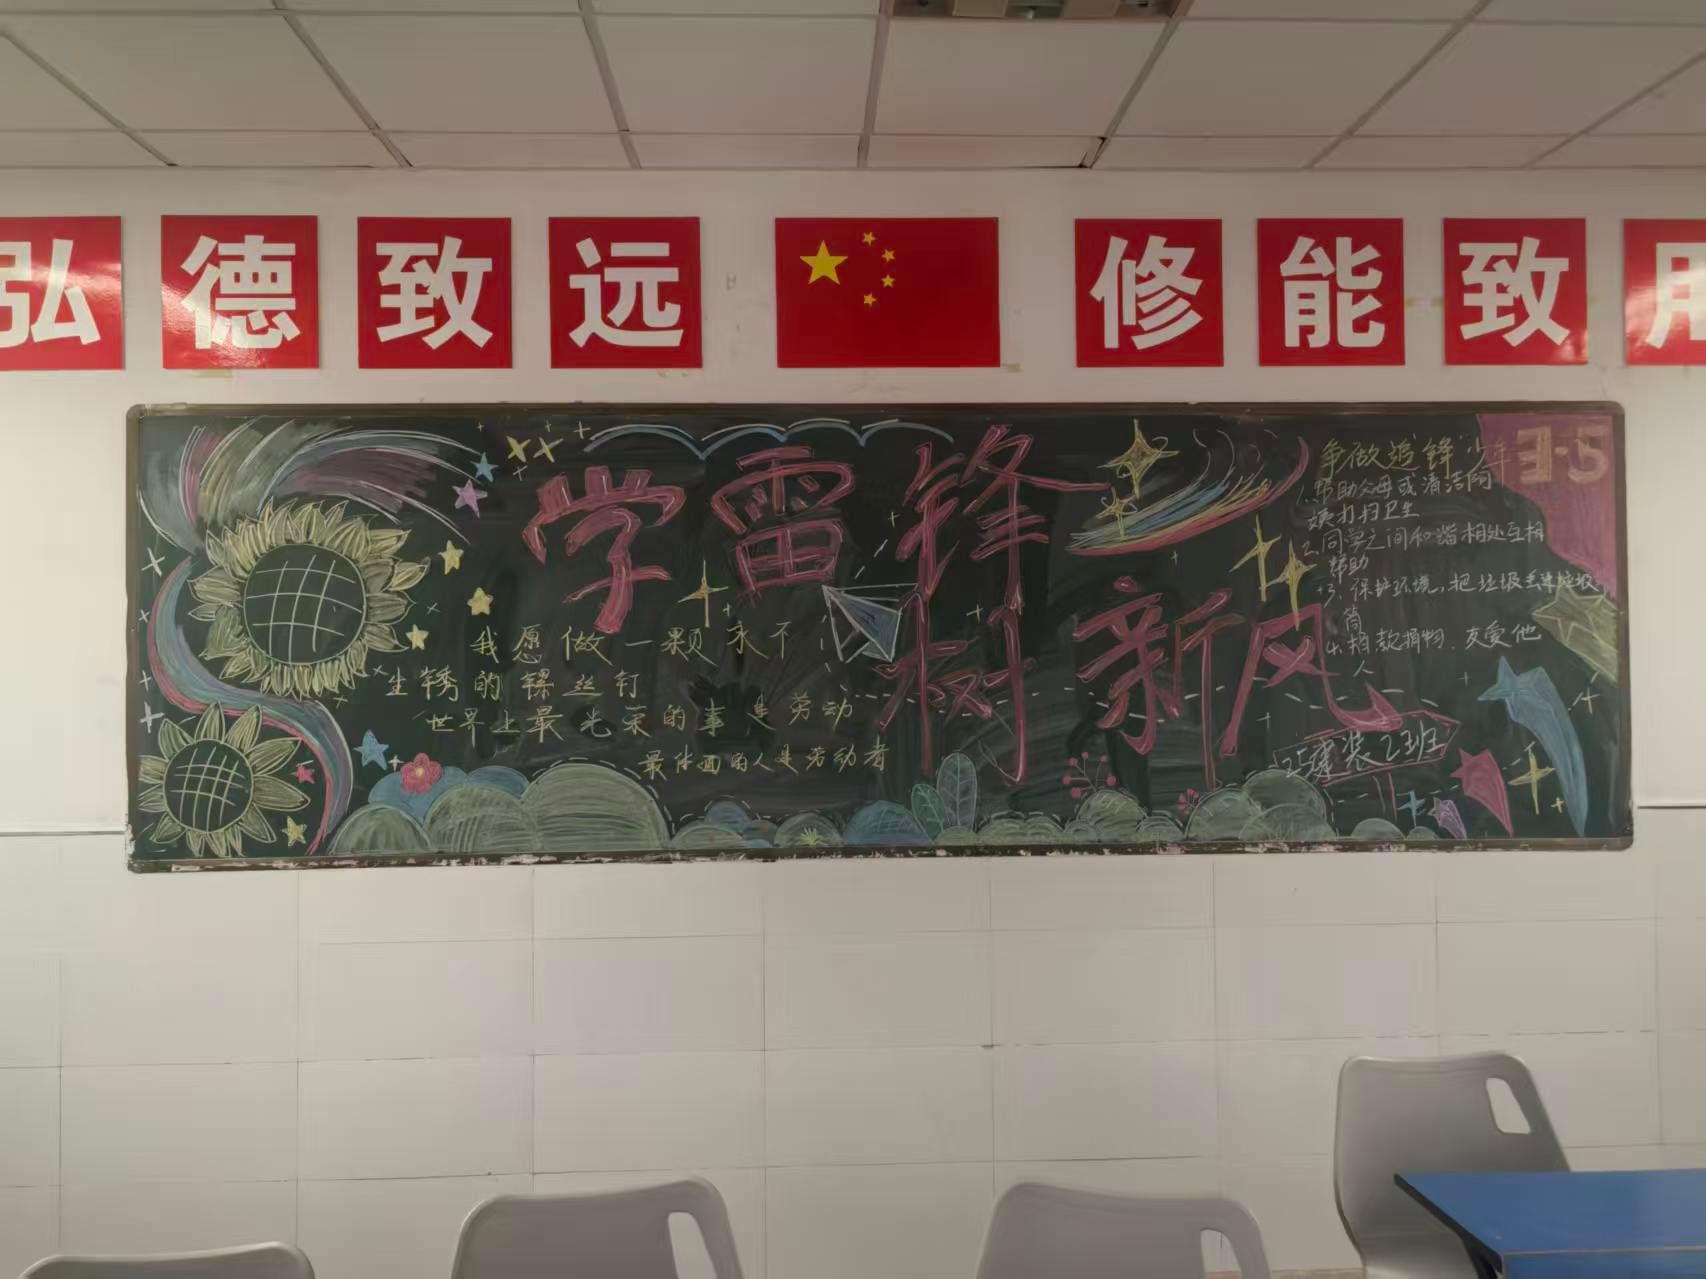 弘德致远 修能致用
学雷锋
树新风
我愿做一颗永不
生锈的螺丝钉
世界上最光荣的事是劳动
最体面的人是劳动者
3·5
争做追锋少年
1.帮助父母或清洁阿
姨打扫卫生
2.同学之间和谐相处互相
帮助
3.保护环境,把垃圾丢进垃圾
筒
4.捐款捐物.友爱他
人
25建装2班